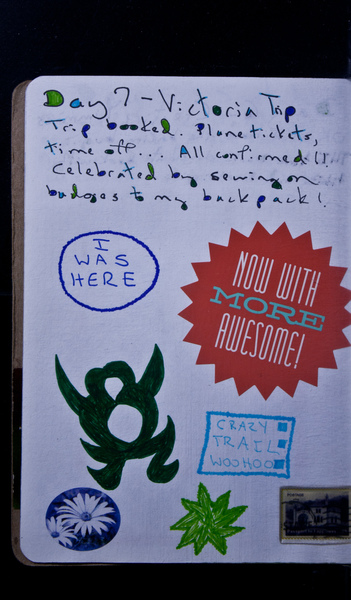 Day 7 - Victoria Trip
Trip booked. Plane tickets,
time off... All confirmed!!
Celebrated by sewing on
badges to my backpack!
I
WAS
HERE
NOW WITH
MORE
AWESOME!
CRAZY
TRAIL
WOOHOO